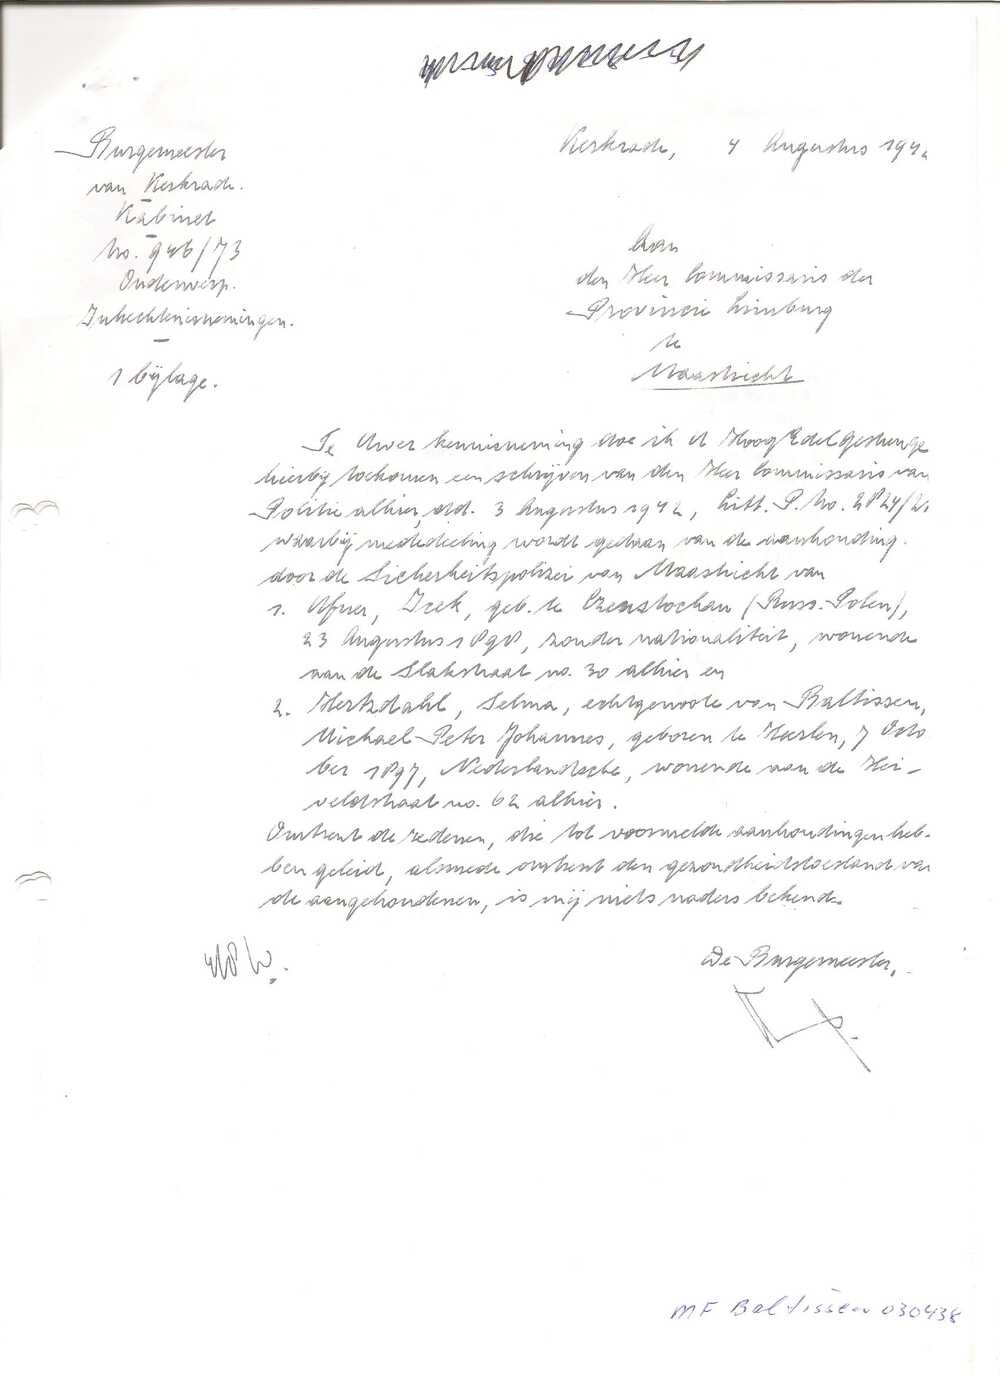 Burgemeester
van Kerkrade.
Kabinet
No. 946/73
Onderwerp.
Inhechtenisnemingen.
1 bijlage.
Kerkrade, 4 Augustus 1942
Aan
den Heer Commissaris der
Provincie Limburg
te
Maastricht
Te Uwer kennisneming doe ik U HoogEdelGestrenge
hierbij toekomen een schrijven van den Heer Commissaris van
Politie alhier, dd. 3 Augustus 1942, Litt. P. No. 2824/2.
waarbij mededeeling wordt gedaan van de aanhouding
door de Sicherheitspolizei van Maastricht van
1. Ufner, Icek, geb. te Czenstochau (Russ. Polen),
23 Augustus 1898, zonder nationaliteit, wonende
aan de Slakstraat no. 30 alhier en
2. Hertzdahl, Selma, echtgenoote van Baltissen,
Michael Peter Johannes, geboren te Heerlen, 7 Octo
ber 1897, Nederlandsche, wonende aan de Hei-
veldstraat no. 62 alhier.
Omtrent de redenen, die tot voormelde aanhoudingen heb-
ben geleid, alsmede omtrent den gezondheidstoestand van
de aangehoudenen, is mij niets naders bekend.
De Burgemeester,
MF Baltissen 030438